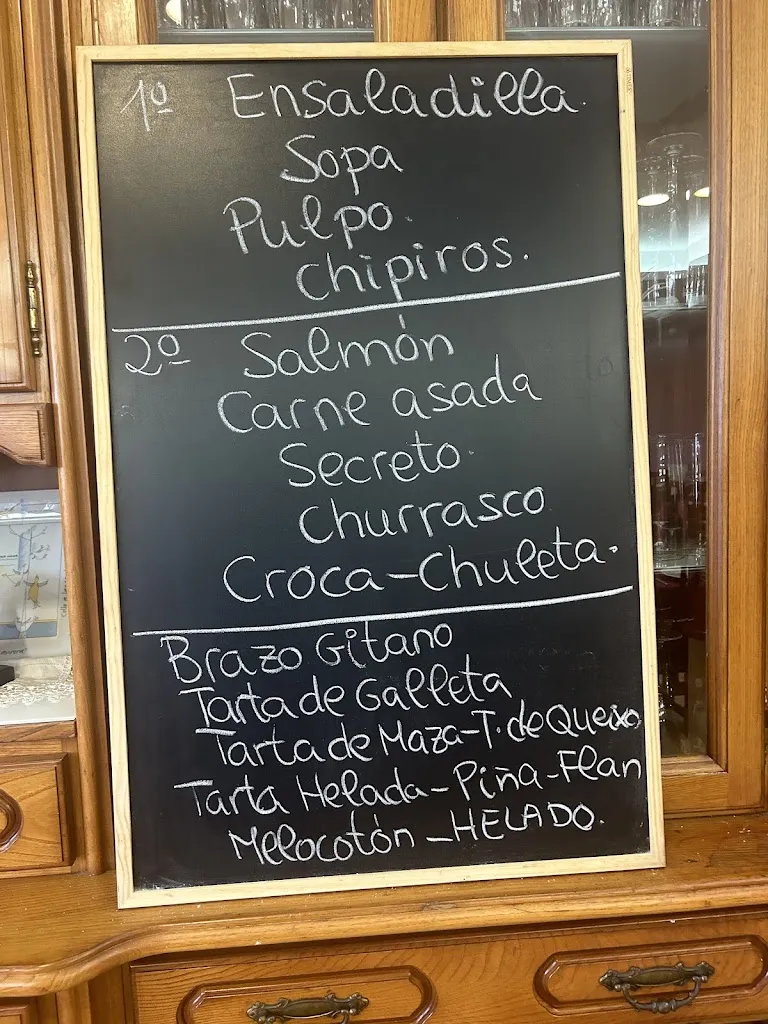 1º Ensaladilla.
Sopa
Pulpo.
Chipiros.
2º Salmón
Carne asada
Secreto.
Churrasco
Croca-Chuleta.
Brazo Gitano
Tarta de Galleta
Tarta de Maza-T. de Queixo
Tarta Helada-Piña-Flan
Melocotón-HELADO.